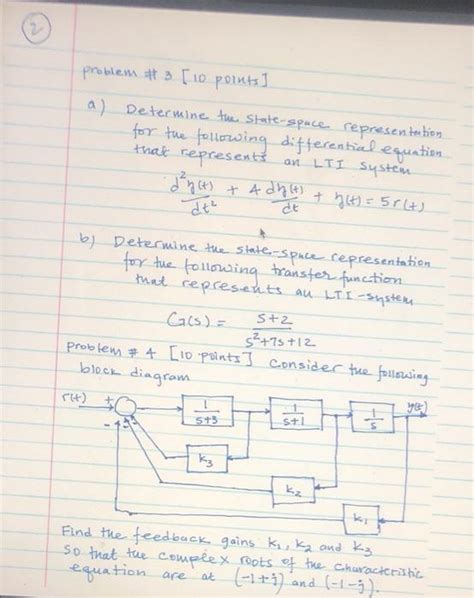 2
problem # 3 [10 points]
a) Determine the state-space representation
for the following differential equation
that represents an LTI system
d²y(t)/dt² + 4 dy(t)/dt + y(t) = 5r(t)
b) Determine the state-space representation
for the following transfer function
that represents an LTI-system
G(s) = s+2 / s²+7s+12
problem # 4 [10 points] Consider the following
block diagram
r(t) + 1/s+3 1/s+1 1/s y(t)
- - -
k3
k2
k1
Find the feedback gains k1, k2 and k3
so that the complex roots of the characteristic
equation are at (-1+j) and (-1-j).